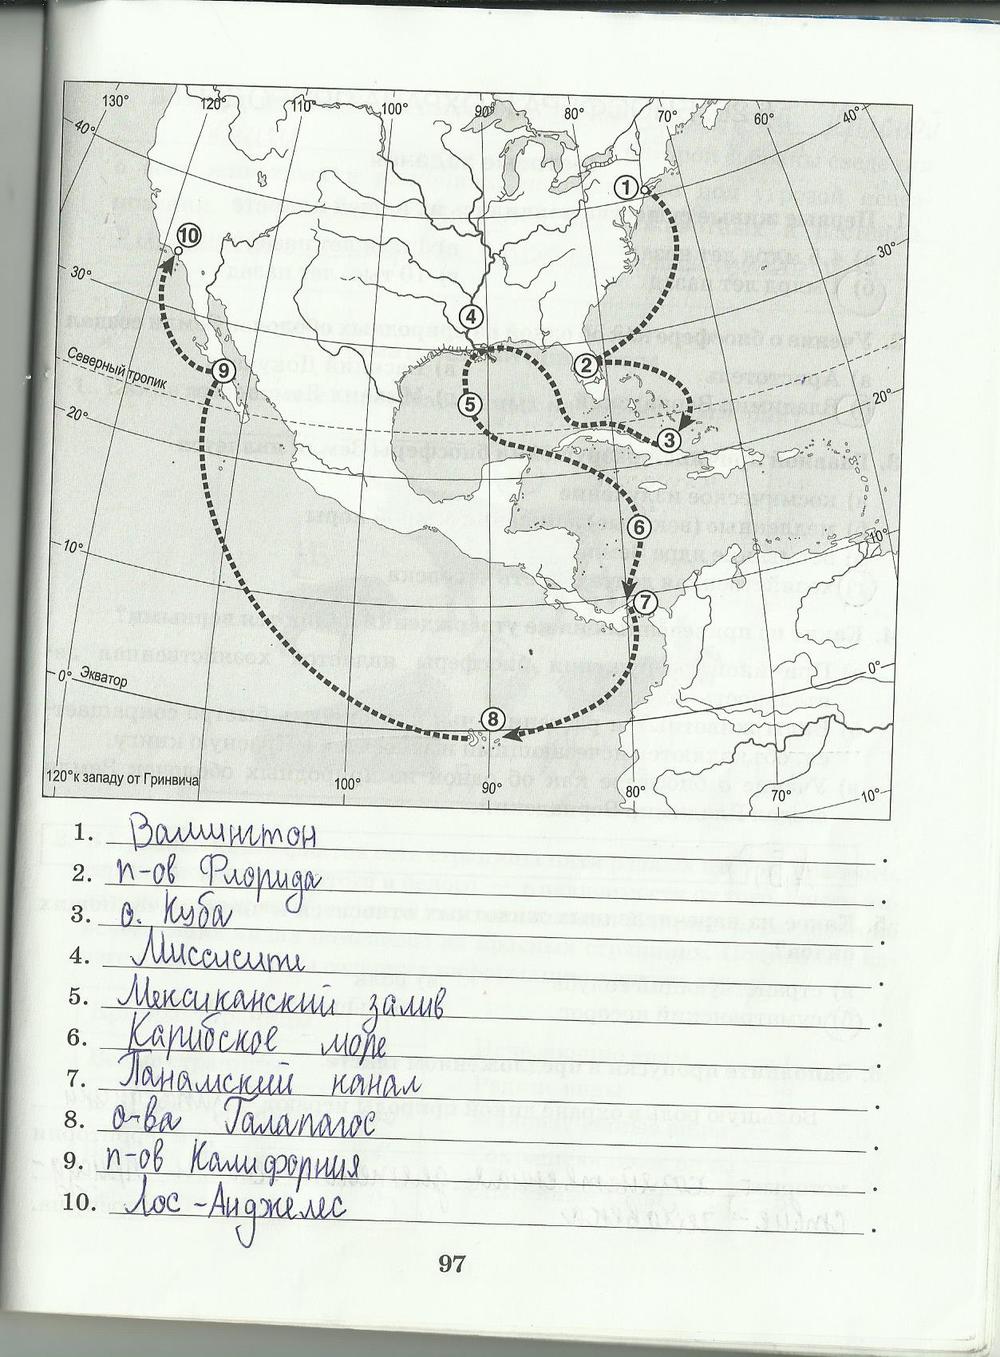 130°
120°
110°
100°
90°
80°
70°
60°
40°
40°
1
10
30°
30°
4
2
9
Северный тропик
20°
5
20°
3
6
10°
10°
7
0°
Экватор
0°
8
120° к западу от Гринвича
100°
90°
80°
70°
10°
1. Вашингтон.
2. п-ов Флорида.
3. о. Куба.
4. Миссисипи.
5. Мексиканский залив.
6. Карибское море.
7. Панамский канал.
8. о-ва Галапагос.
9. п-ов Калифорния.
10. Лос-Анджелес.
97